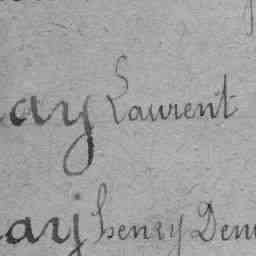 ay Laurent
ay henry Den